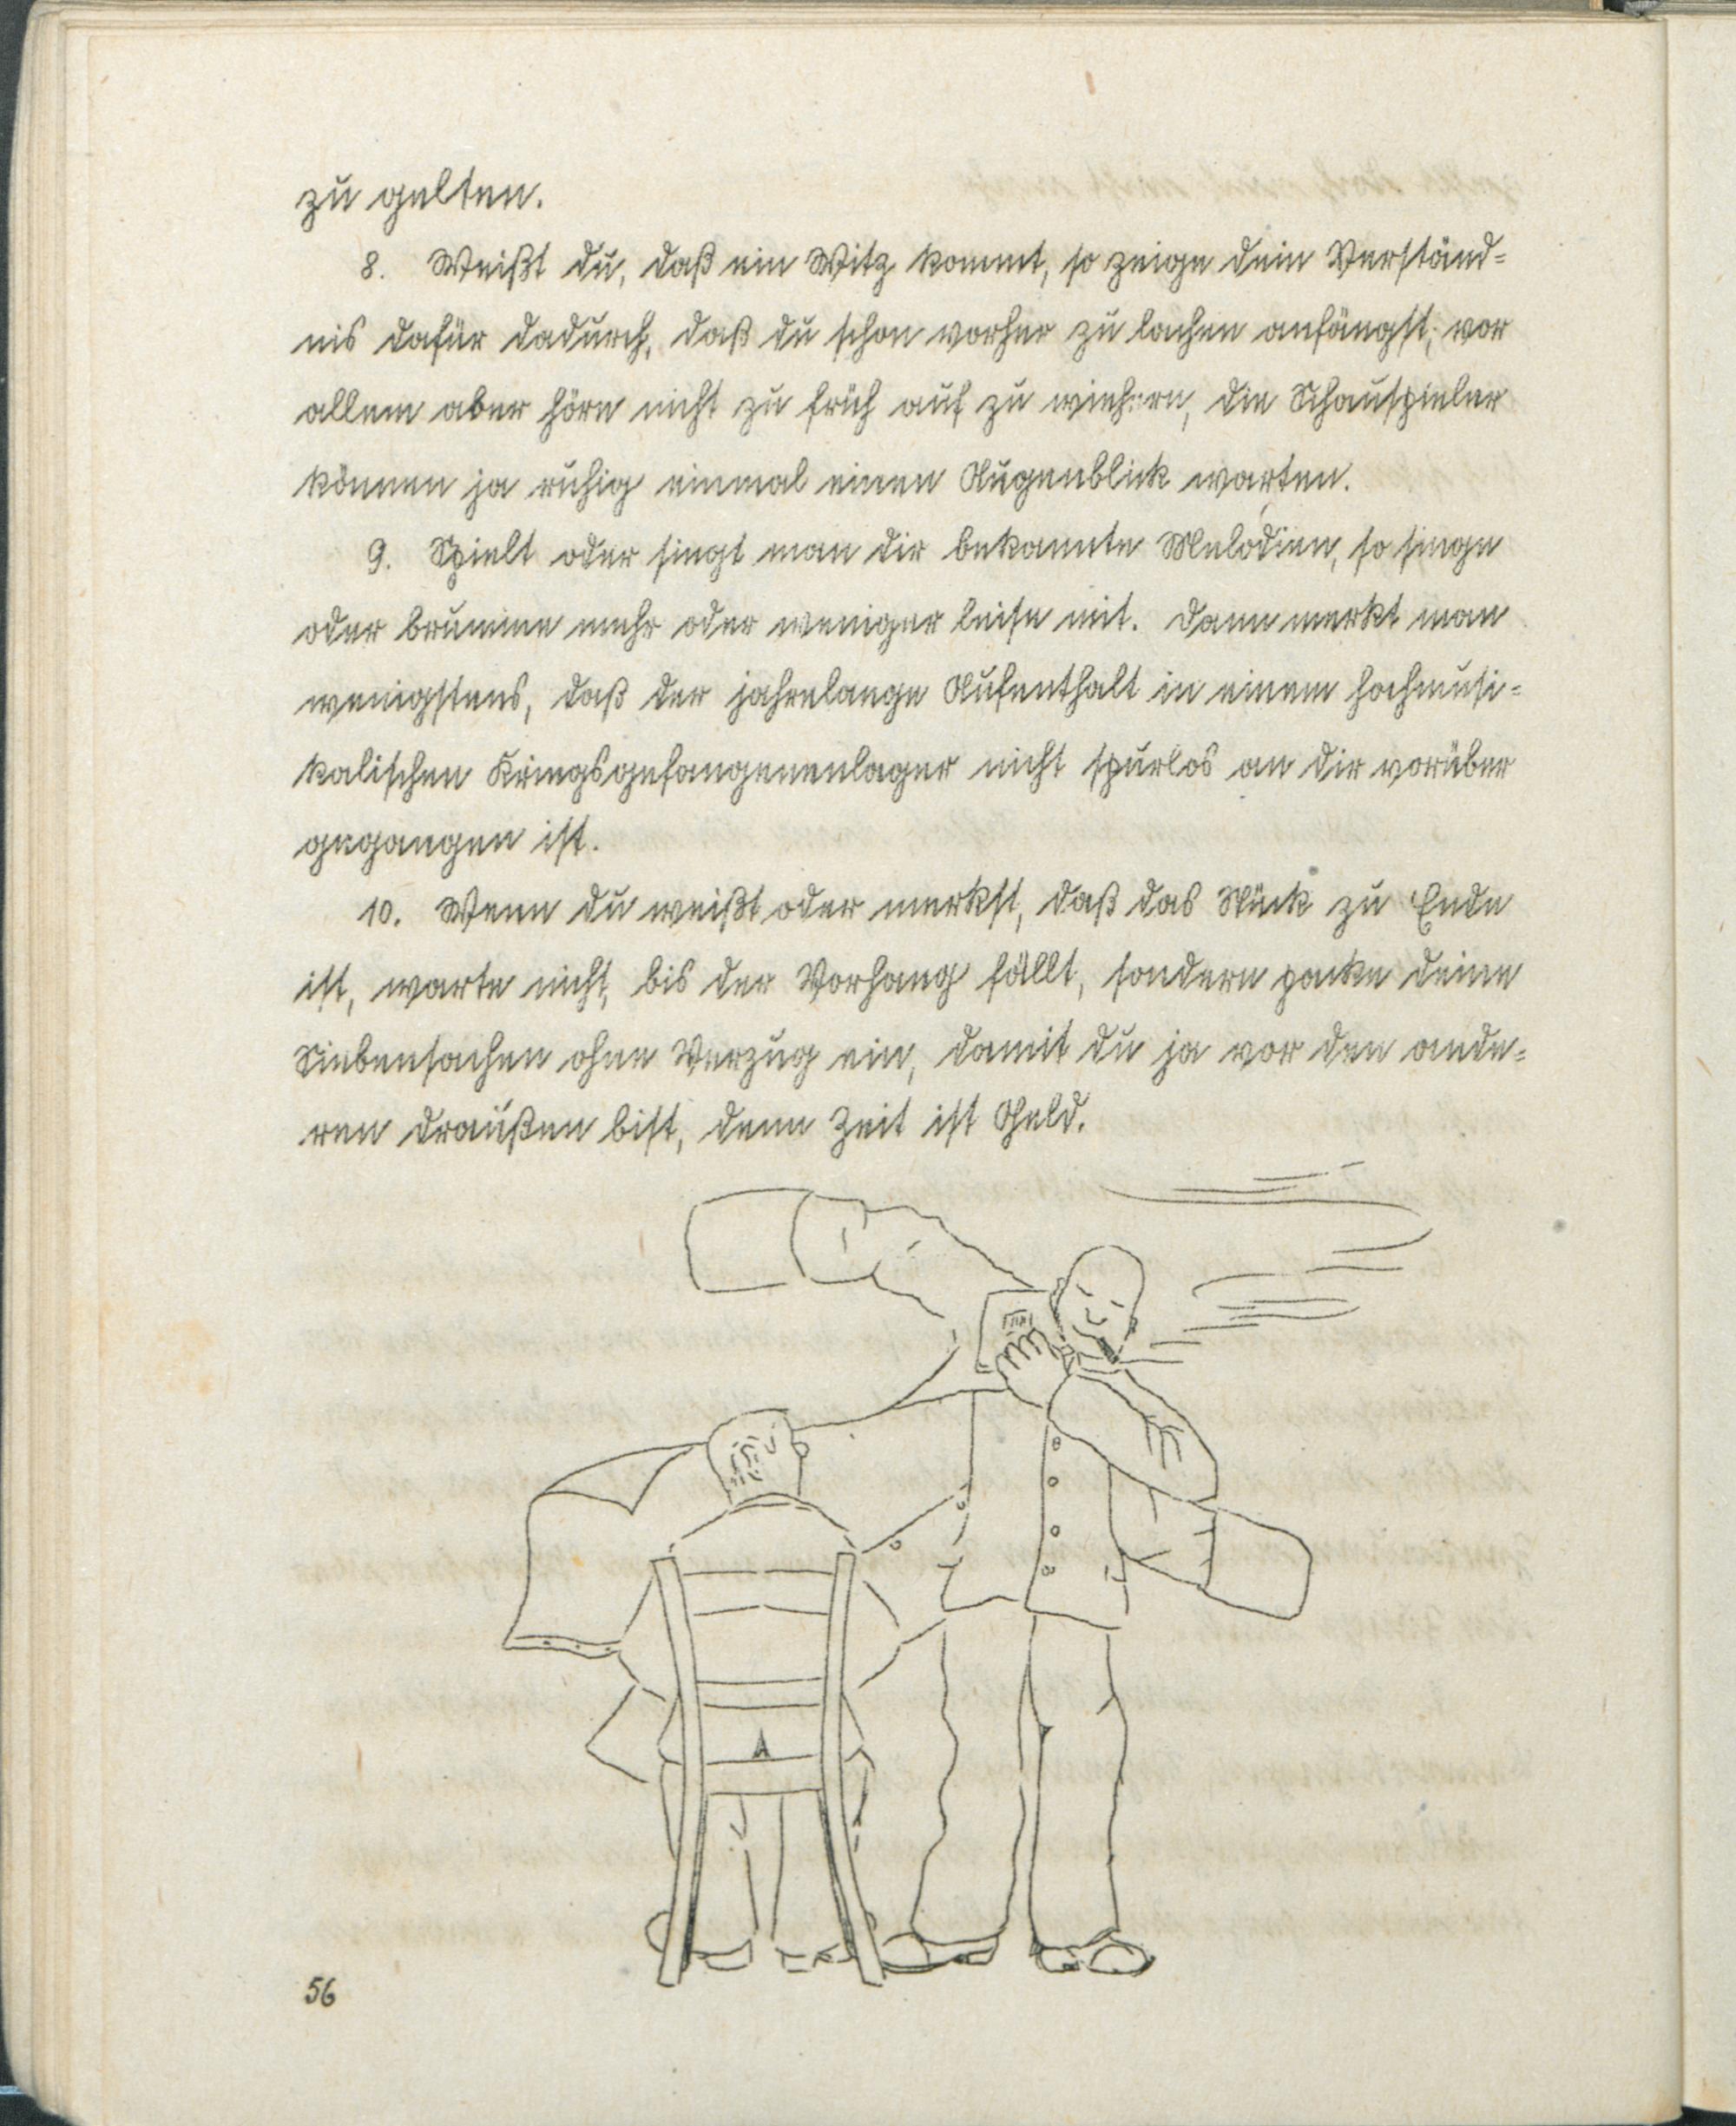 zu gelten.
8. Weißt du, daß ein Witz kommt, so zeige dein Verständ=
nis dafür dadurch, daß du schon vorher zu lachen anfängst; vor
allem aber höre nicht zu früh auf zu wiehern, die Schauspieler
können ja ruhig einmal einen Augenblick warten.
9. Spielt oder singt man dir bekannte Melodien, so singe
oder brumme mehr oder weniger leise mit. Dann merkt man
wenigstens, daß der jahrelange Aufenthalt in einem hochmusi=
kalischen Kriegsgefangenenlager nicht spurlos an dir vorüber
gegangen ist.
10. Wenn du weißt oder merkst, daß das Stück zu Ende
ist, warte nicht, bis der Vorhang fällt, sondern packe deine
Siebensachen ohne Verzug ein, damit du ja vor den ande=
ren draußen bist, denn Zeit ist Geld.
56